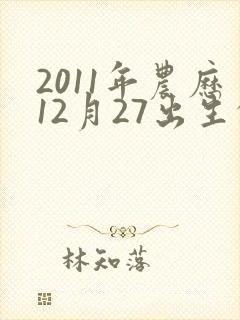 2011年農歷
12月27出生
林知落